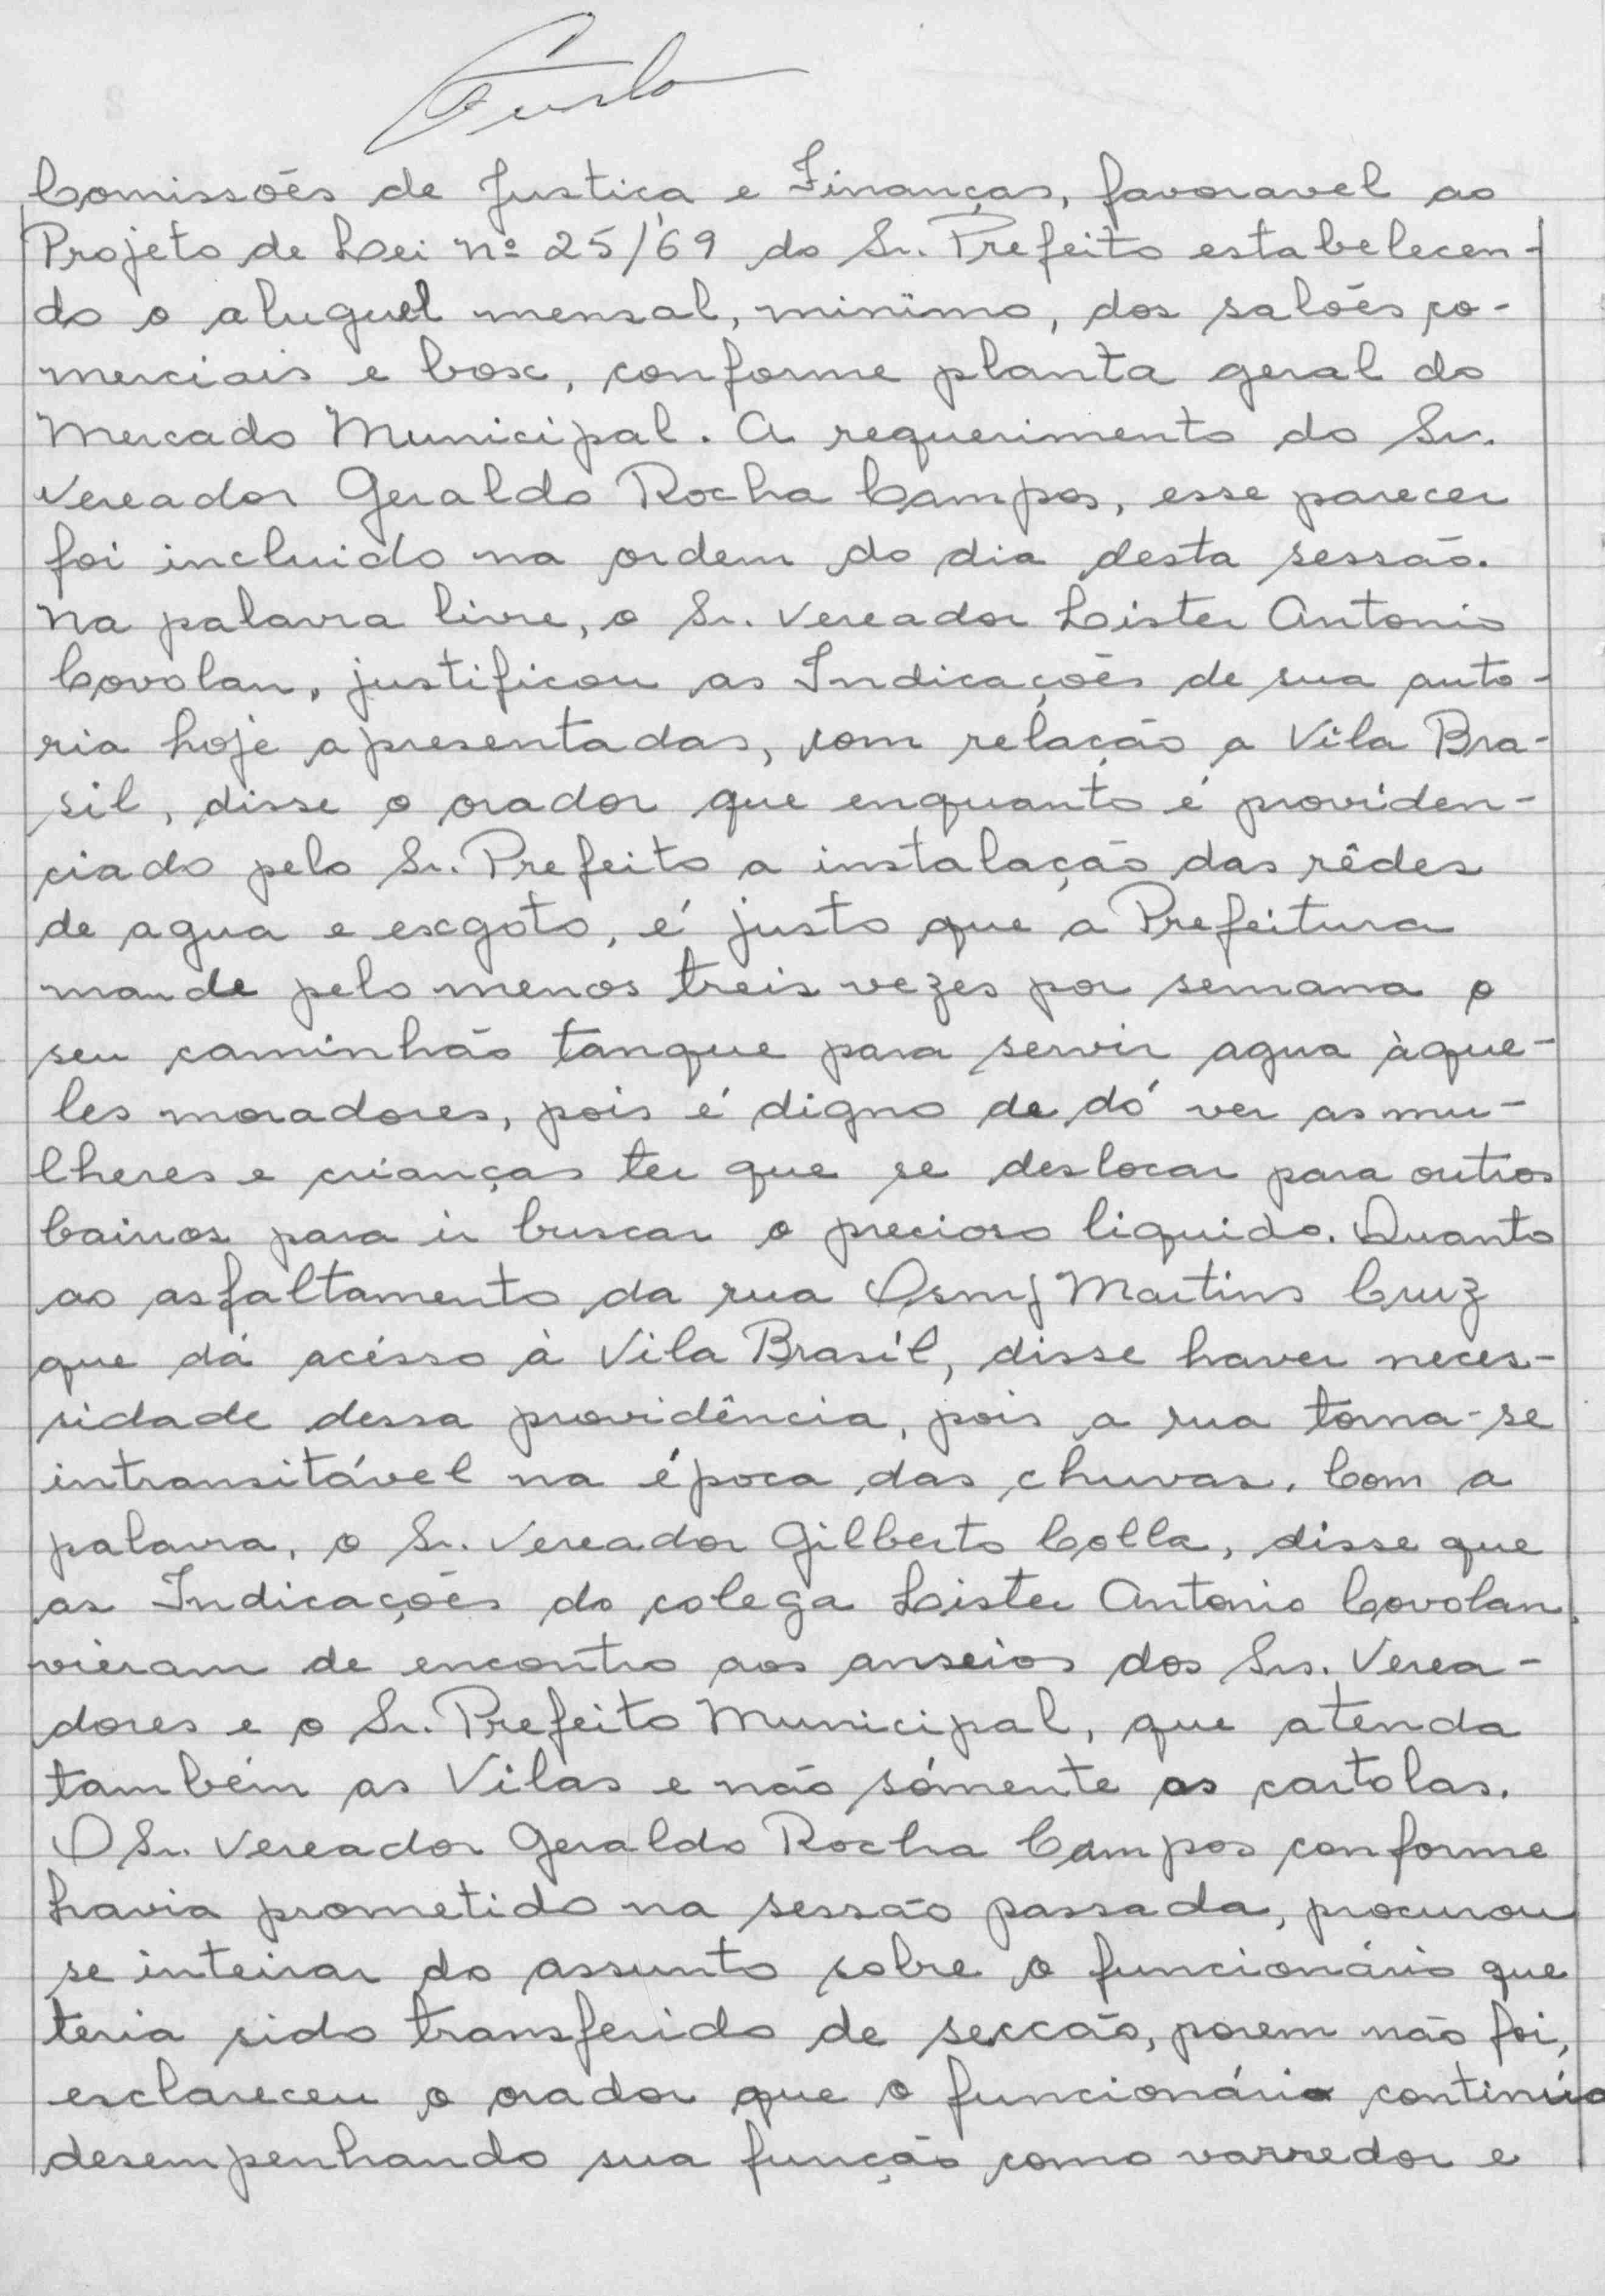 Comissões de Justiça e Finanças, favoravel ao
Projeto de Lei nº 25/69 do Sr. Prefeito estabelecen-
do o aluguel mensal, minimo, dos salões co-
merciais e box, conforme planta geral do
Mercado Municipal. A requerimento do Sr.
Vereador Geraldo Rocha Campos, esse parecer
foi incluido na ordem do dia desta sessão.
Na palavra livre, o Sr. Vereador Lister Antonio
Covolan, justificou as Indicações de sua auto-
ria hoje apresentadas, com relação a Vila Bra-
sil, disse o orador que enquanto é providen-
ciado pelo Sr. Prefeito a instalação das rêdes
de agua e exgoto, é justo que a Prefeitura
mande pelo menos treis vezes por semana o
seu caminhão tanque para servir agua àque-
les moradores, pois é digno de dó ver as mu-
lheres e crianças ter que se deslocar para outros
bairros para ir buscar o precioso liquido. Quanto
ao asfaltamento da rua Osmy Martins Cruz
que dá acésso à Vila Brasil, disse haver neces-
sidade dessa providência, pois a rua torna-se
intransitável na época das chuvas. Com a
palavra, o Sr. Vereador Gilberto Colla, disse que
as Indicações do colega Lister Antonio Covolan,
vieram de encontro aos anseios dos Srs. Verea-
dores e o Sr. Prefeito Municipal, que atenda
também as Vilas e não sómente os cartolas.
O Sr. Vereador Geraldo Rocha Campos conforme
havia prometido na sessão passada, procurou
se inteirar do assunto sobre o funcionário que
teria sido transferido de secção, porem não foi,
esclareceu o orador que o funcionário continúa
desempenhando sua função como varredor e